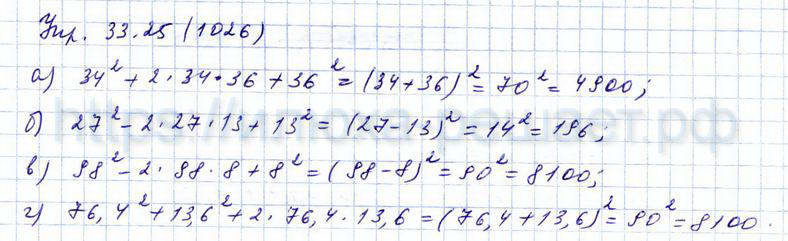 Упр. 33.25 (1026)
а) 34² + 2 · 34 · 36 + 36² = (34 + 36)² = 70² = 4900;
б) 27² - 2 · 27 · 13 + 13² = (27 - 13)² = 14² = 196;
в) 98² - 2 · 98 · 8 + 8² = (98 - 8)² = 90² = 8100;
г) 76,4² + 13,6² + 2 · 76,4 · 13,6 = (76,4 + 13,6)² = 90² = 8100.